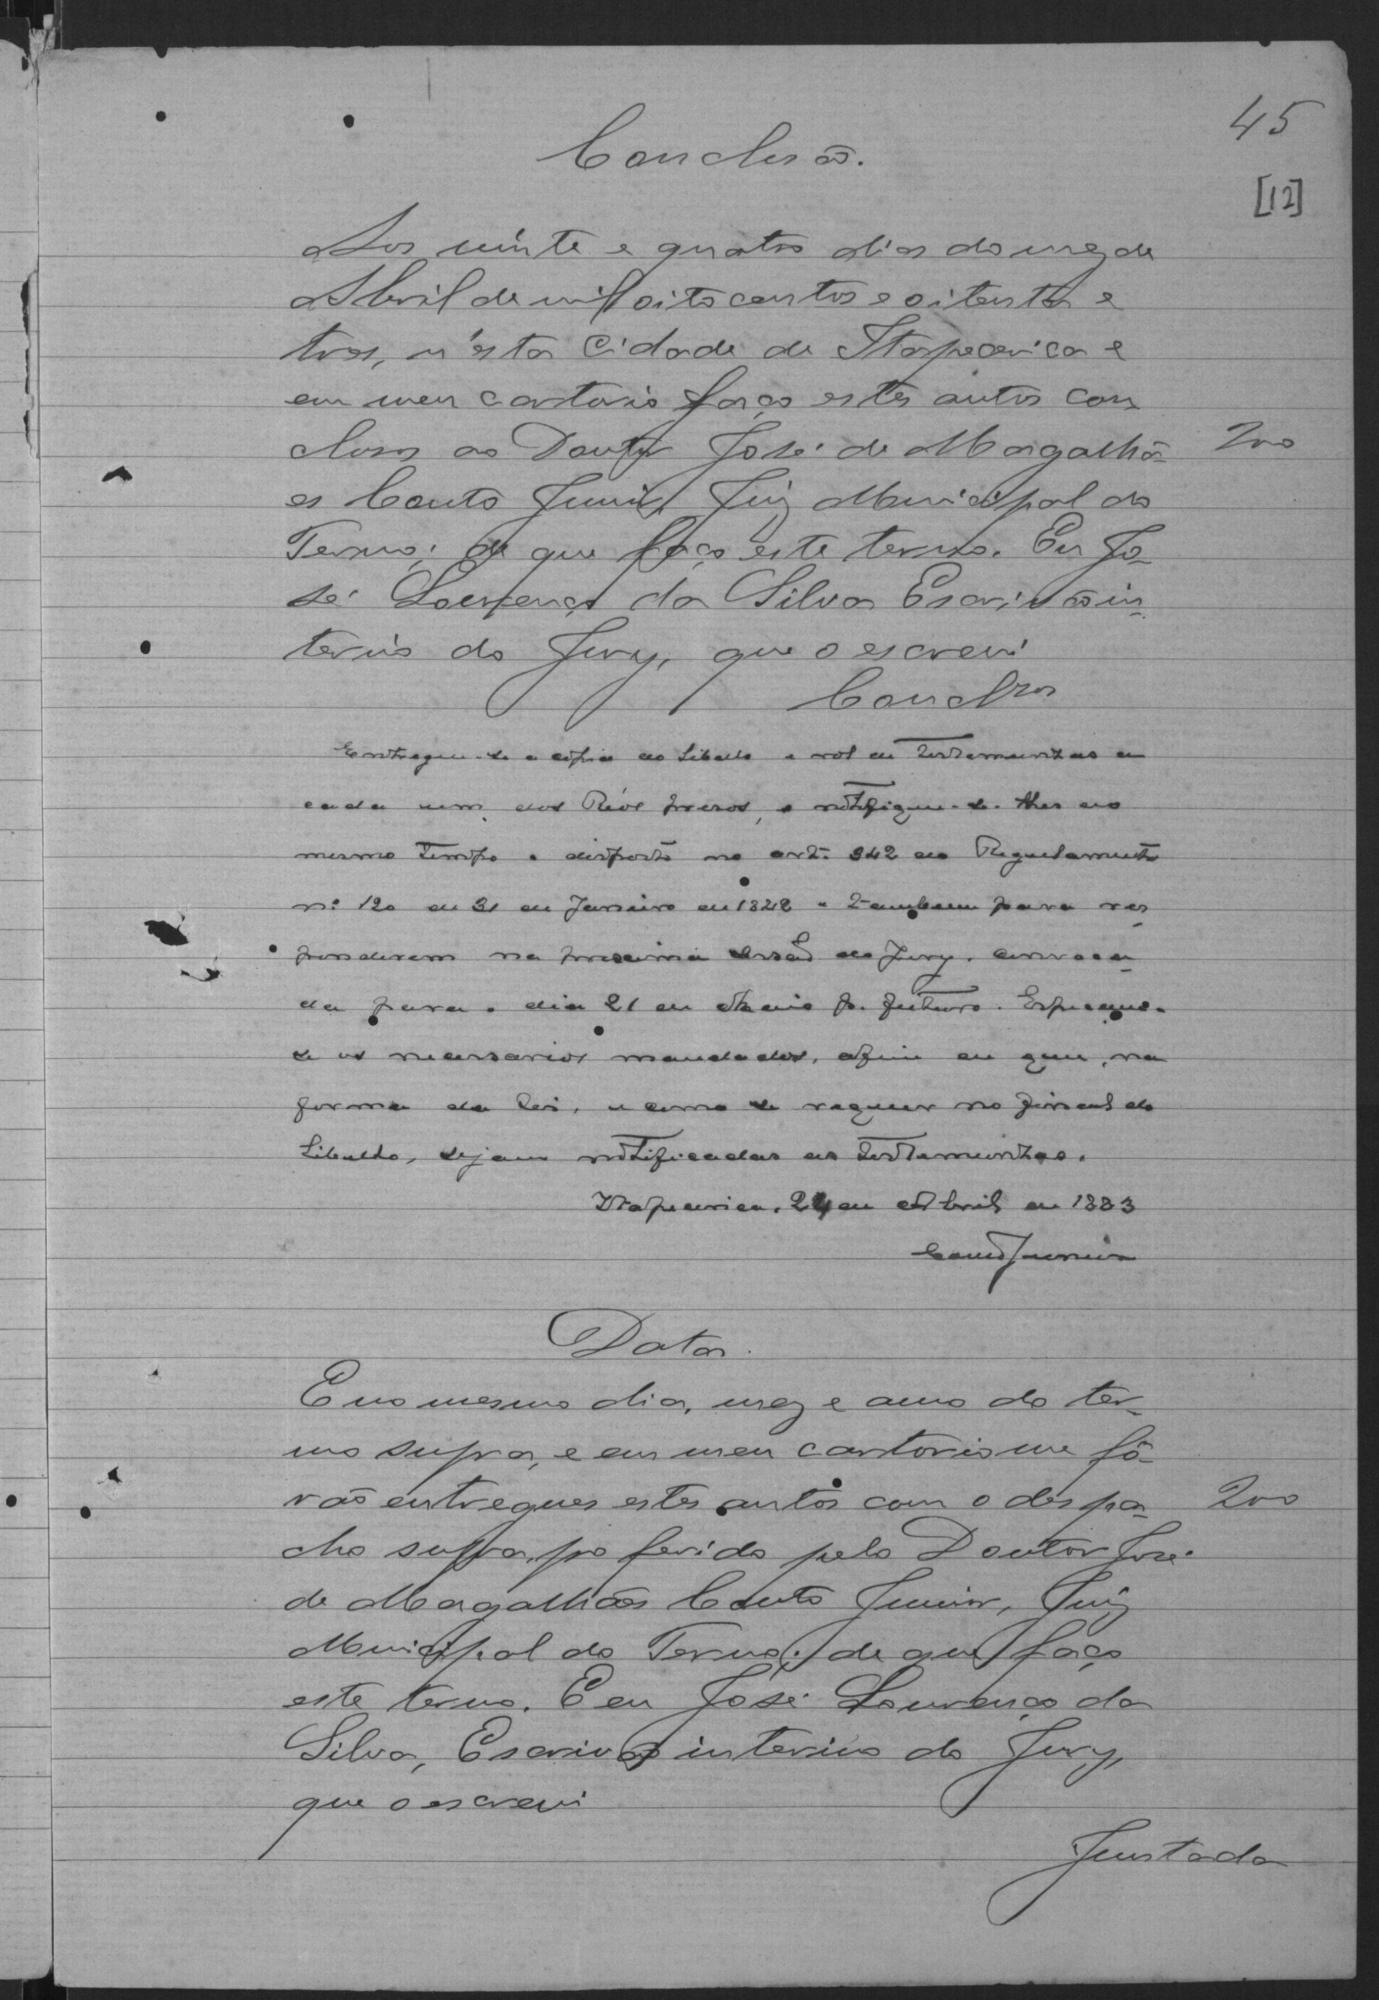 45
[12]
Conclusão.
Aos vinte e quatro dias do mez de
Abril de mil oito centos e oitenta e
tres, n'esta Cidade de Itapecerica e
em meu cartorio faço estes autos con
clusos ao Doutor José de Magalhã-
es Couto Junior, Juiz Municipal do
Termo; de que faço este termo. Eu Jo-
sé Lourenço da Silva Escrivão in-
terino do Jury, que o escrevi
200
Conclzos
Entregue-se a cópia do Libello e rol de testemunhas a
cada um dos Réos prezos, e notifique-se-lhes ao
mesmo tempo o disposto no art. 342 do Regulamento
nº 120 de 31 de Janeiro de 1842 e tambem para res
ponderem na proxima sessão do Jury, convoca
da para o dia 21 de Maio p. futuro. Espeção-
se os necessarios mandados, afim de que, na
forma da Lei, e como se requer no final do
Libello, sejam notificadas as testemunhas.
Itapecerica, 24 de Abril de 1883
Couto Junior
Data.
E no mesmo dia, mez e anno do ter-
mo supra, e em meu cartorio me fô-
rão entregues estes autos com o despa-
cho supra, proferido pelo Doutor José
de Magalhães Couto Junior, Juiz
Municipal do Termo; de que faço
este termo. E eu José Lourenço da
Silva, Escrivão interino do Jury,
que o escrevi
200
Juntada